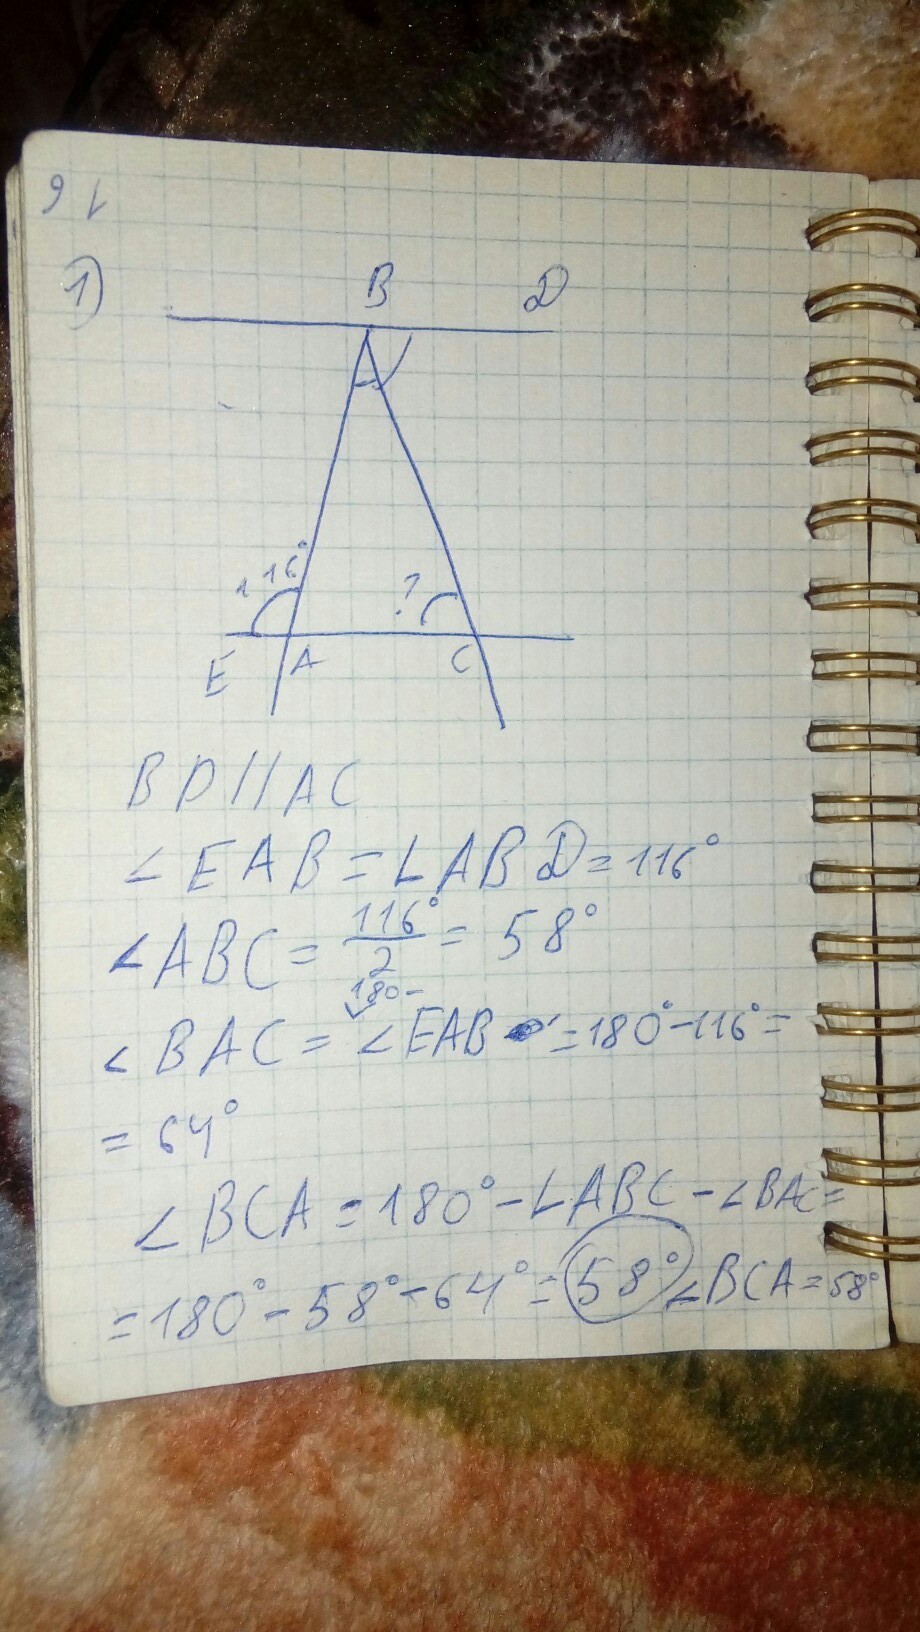 1)
B D
116°
?
E A C
BD//AC
∠EAB=∠ABD=116°
∠ABC=116°/2=58°
180-
∠BAC=∠EAB=180°-116°=
=64°
∠BCA=180°-∠ABC-∠BAC=
=180°-58°-64°=58° ∠BCA=58°